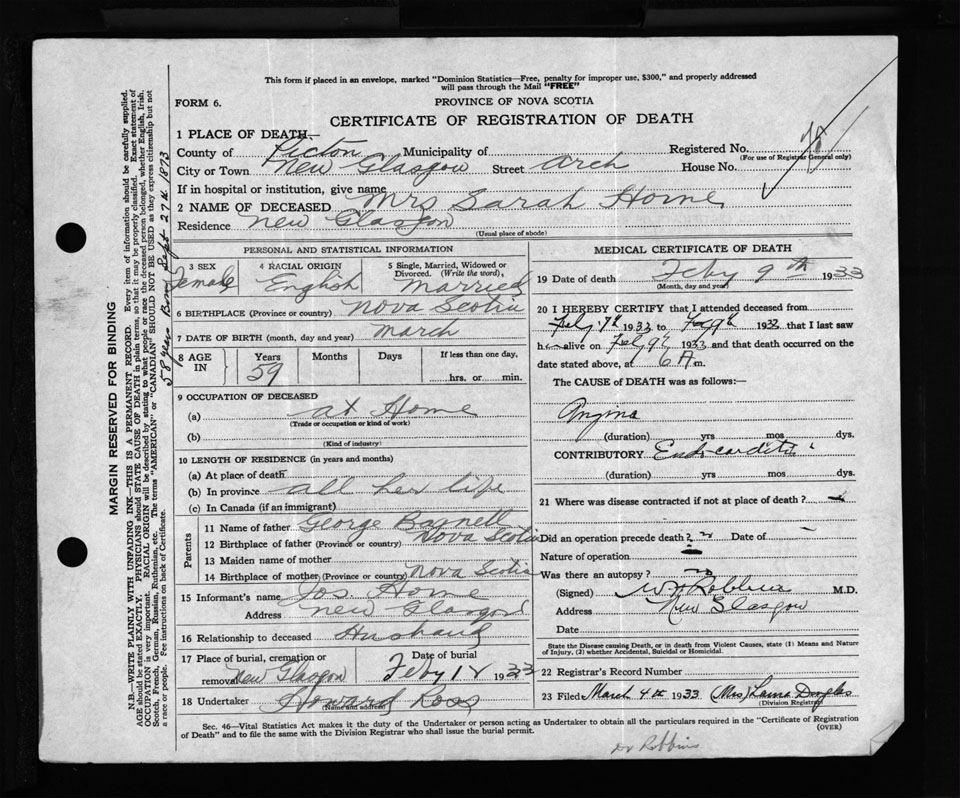 This form if placed in an envelope, marked "Dominion Statistics—Free, penalty for improper use, $300," and properly addressed
will pass through the Mail "FREE"
FORM 6.
PROVINCE OF NOVA SCOTIA
CERTIFICATE OF REGISTRATION OF DEATH
1 PLACE OF DEATH—
County of Pictou Municipality of Registered No.
(For use of Registrar General only)
City or Town New Glasgow Street Arch House No.
If in hospital or institution, give name
2 NAME OF DECEASED Mrs Sarah Horne
Residence New Glasgow
(Usual place of abode)
PERSONAL AND STATISTICAL INFORMATION
3 SEX Female
4 RACIAL ORIGIN English
5 Single, Married, Widowed or Divorced. (Write the word), Married
6 BIRTHPLACE (Province or country) Nova Scotia
7 DATE OF BIRTH (month, day and year) March
8 AGE IN Years 59 Months Days If less than one day, hrs. or min.
9 OCCUPATION OF DECEASED
(a) at Home
(Trade or occupation or kind of work)
(b)
(Kind of industry)
10 LENGTH OF RESIDENCE (in years and months)
(a) At place of death
(b) In province all her life
(c) In Canada (if an immigrant)
Parents
11 Name of father George
12 Birthplace of father (Province or country) Nova Scotia
13 Maiden name of mother
14 Birthplace of mother (Province or country) Nova Scotia
15 Informant's name Jos. Horne
Address New Glasgow
16 Relationship to deceased Husband
17 Place of burial, cremation or removal New Glasgow
Date of burial Feby 1 1933
18 Undertaker Howard Ross
(Name and address)
MEDICAL CERTIFICATE OF DEATH
19 Date of death Feby 9th 1933
(Month, day and year)
20 I HEREBY CERTIFY that I attended deceased from
Feb 7th 1933 to Feb 9th 1933 that I last saw
h alive on Feb 9th 1933 and that death occurred on the
date stated above, at 6 A m.
The CAUSE OF DEATH was as follows:—
Angina
(duration) yrs mos dys.
CONTRIBUTORY Endocarditis
(duration) yrs mos dys.
21 Where was disease contracted if not at place of death?
Did an operation precede death? no Date of
Nature of operation
Was there an autopsy? no
(Signed) Robbins M.D.
Address New Glasgow
Date
State the Disease causing Death, or in death from Violent Causes, state (1) Means and Nature
of Injury, (2) whether Accidental, Suicidal or Homicidal.
22 Registrar's Record Number
23 Filed March 4th 1933 (Mrs) Laura Douglas
(Division Registrar)
Sec. 46—Vital Statistics Act makes it the duty of the Undertaker or person acting as Undertaker to obtain all the particulars required in the "Certificate of Registration
of Death" and to file the same with the Division Registrar who shall issue the burial permit.
(OVER)
Dr Robbins
MARGIN RESERVED FOR BINDING
N.B.—WRITE PLAINLY WITH UNFADING INK—THIS IS A PERMANENT RECORD. Every item of information should be carefully supplied.
AGE should be stated EXACTLY. PHYSICIANS should STATE CAUSE OF DEATH in plain terms, so that it may be properly classified. Exact statement of
OCCUPATION is very important. RACIAL ORIGIN will be described by stating to what people or race the deceased person belonged, whether English, Irish,
Scotch, French, German, Russian, Ruthenian, etc. The terms "AMERICAN" or "CANADIAN" SHOULD NOT BE USED as they express citizenship but not
a race or people. Fee instructions on back of Certificate.
58 years Born Sept 27th 1873